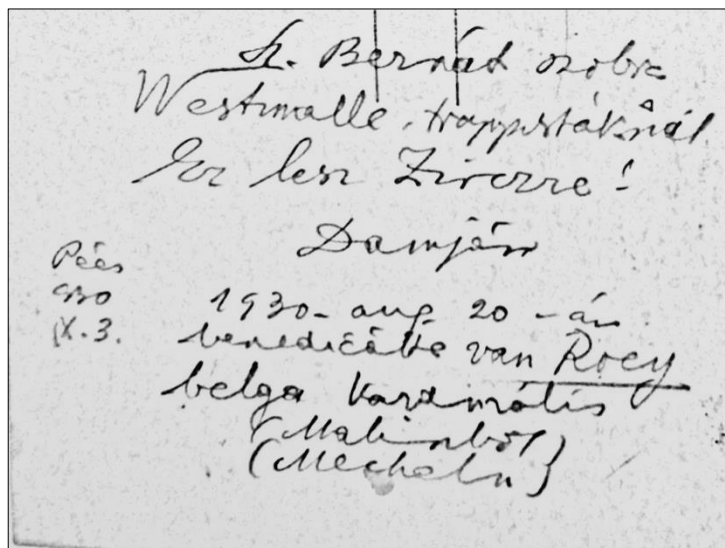 Sz. Bernát szobra
Westmalle, trappistáknál
Ez lesz Zircre!
Damján
Pécs
930
IX. 3.
1930. aug. 20-án
benedicálta van Roey
belga kardinális
(Malinesból)
(Mecheln)